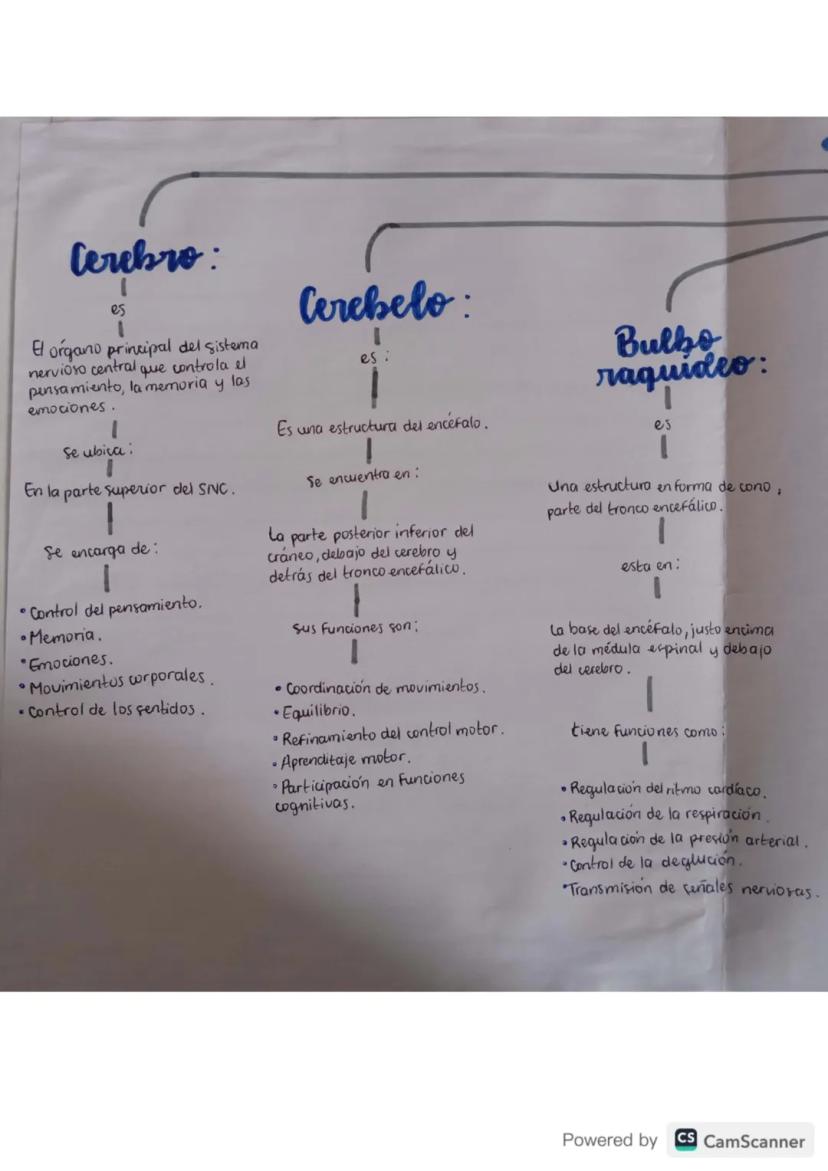 Cerebro:
es
El órgano principal del sistema
nervioso central que controla el
pensamiento, la memoria y las
emociones.
Se ubica:
En la parte superior del SNC.
Se encarga de:
• Control del pensamiento.
• Memoria.
• Emociones.
• Movimientos corporales.
• Control de los sentidos.
Cerebelo:
es:
Es una estructura del encéfalo.
Se encuentra en:
La parte posterior inferior del
cráneo, debajo del cerebro y
detrás del tronco encefálico.
Sus funciones son:
• Coordinación de movimientos.
• Equilibrio.
• Refinamiento del control motor.
• Aprenditaje motor.
• Participación en funciones
cognitivas.
Bulbo
raquideo:
es
Una estructura en forma de cono,
parte del tronco encefálico.
esta en:
La base del encéfalo, justo encima
de la médula espinal y debajo
del cerebro.
tiene funciones como:
• Regulación del ritmo cardíaco.
• Regulación de la respiración.
• Regulación de la presión arterial.
• Control de la deglución.
• Transmisión de señales nerviosas.
Powered by CS CamScanner